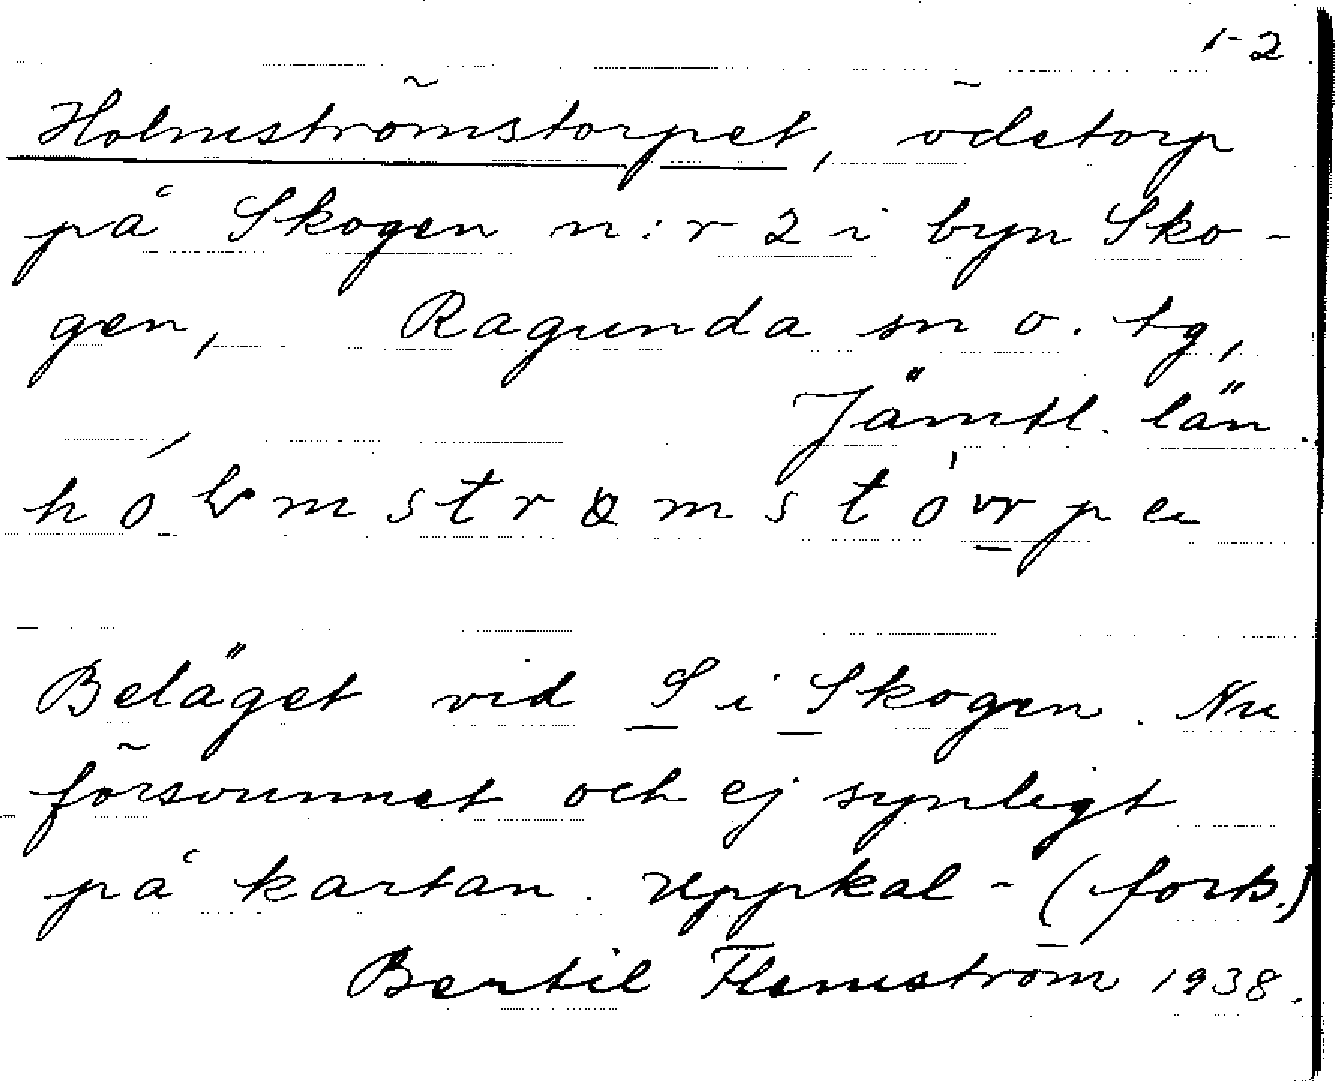 1-2
Holmströmstorpet, ödetorp
på Skogen n:r 2 i byn Sko-
gen, Ragunda sn o. tg,
Jämtl. län.
Beläget vid S i Skogen. Nu
försvunnet och ej synligt
på kartan. Uppkal- (forts.)
Bertil Flemström 1938.